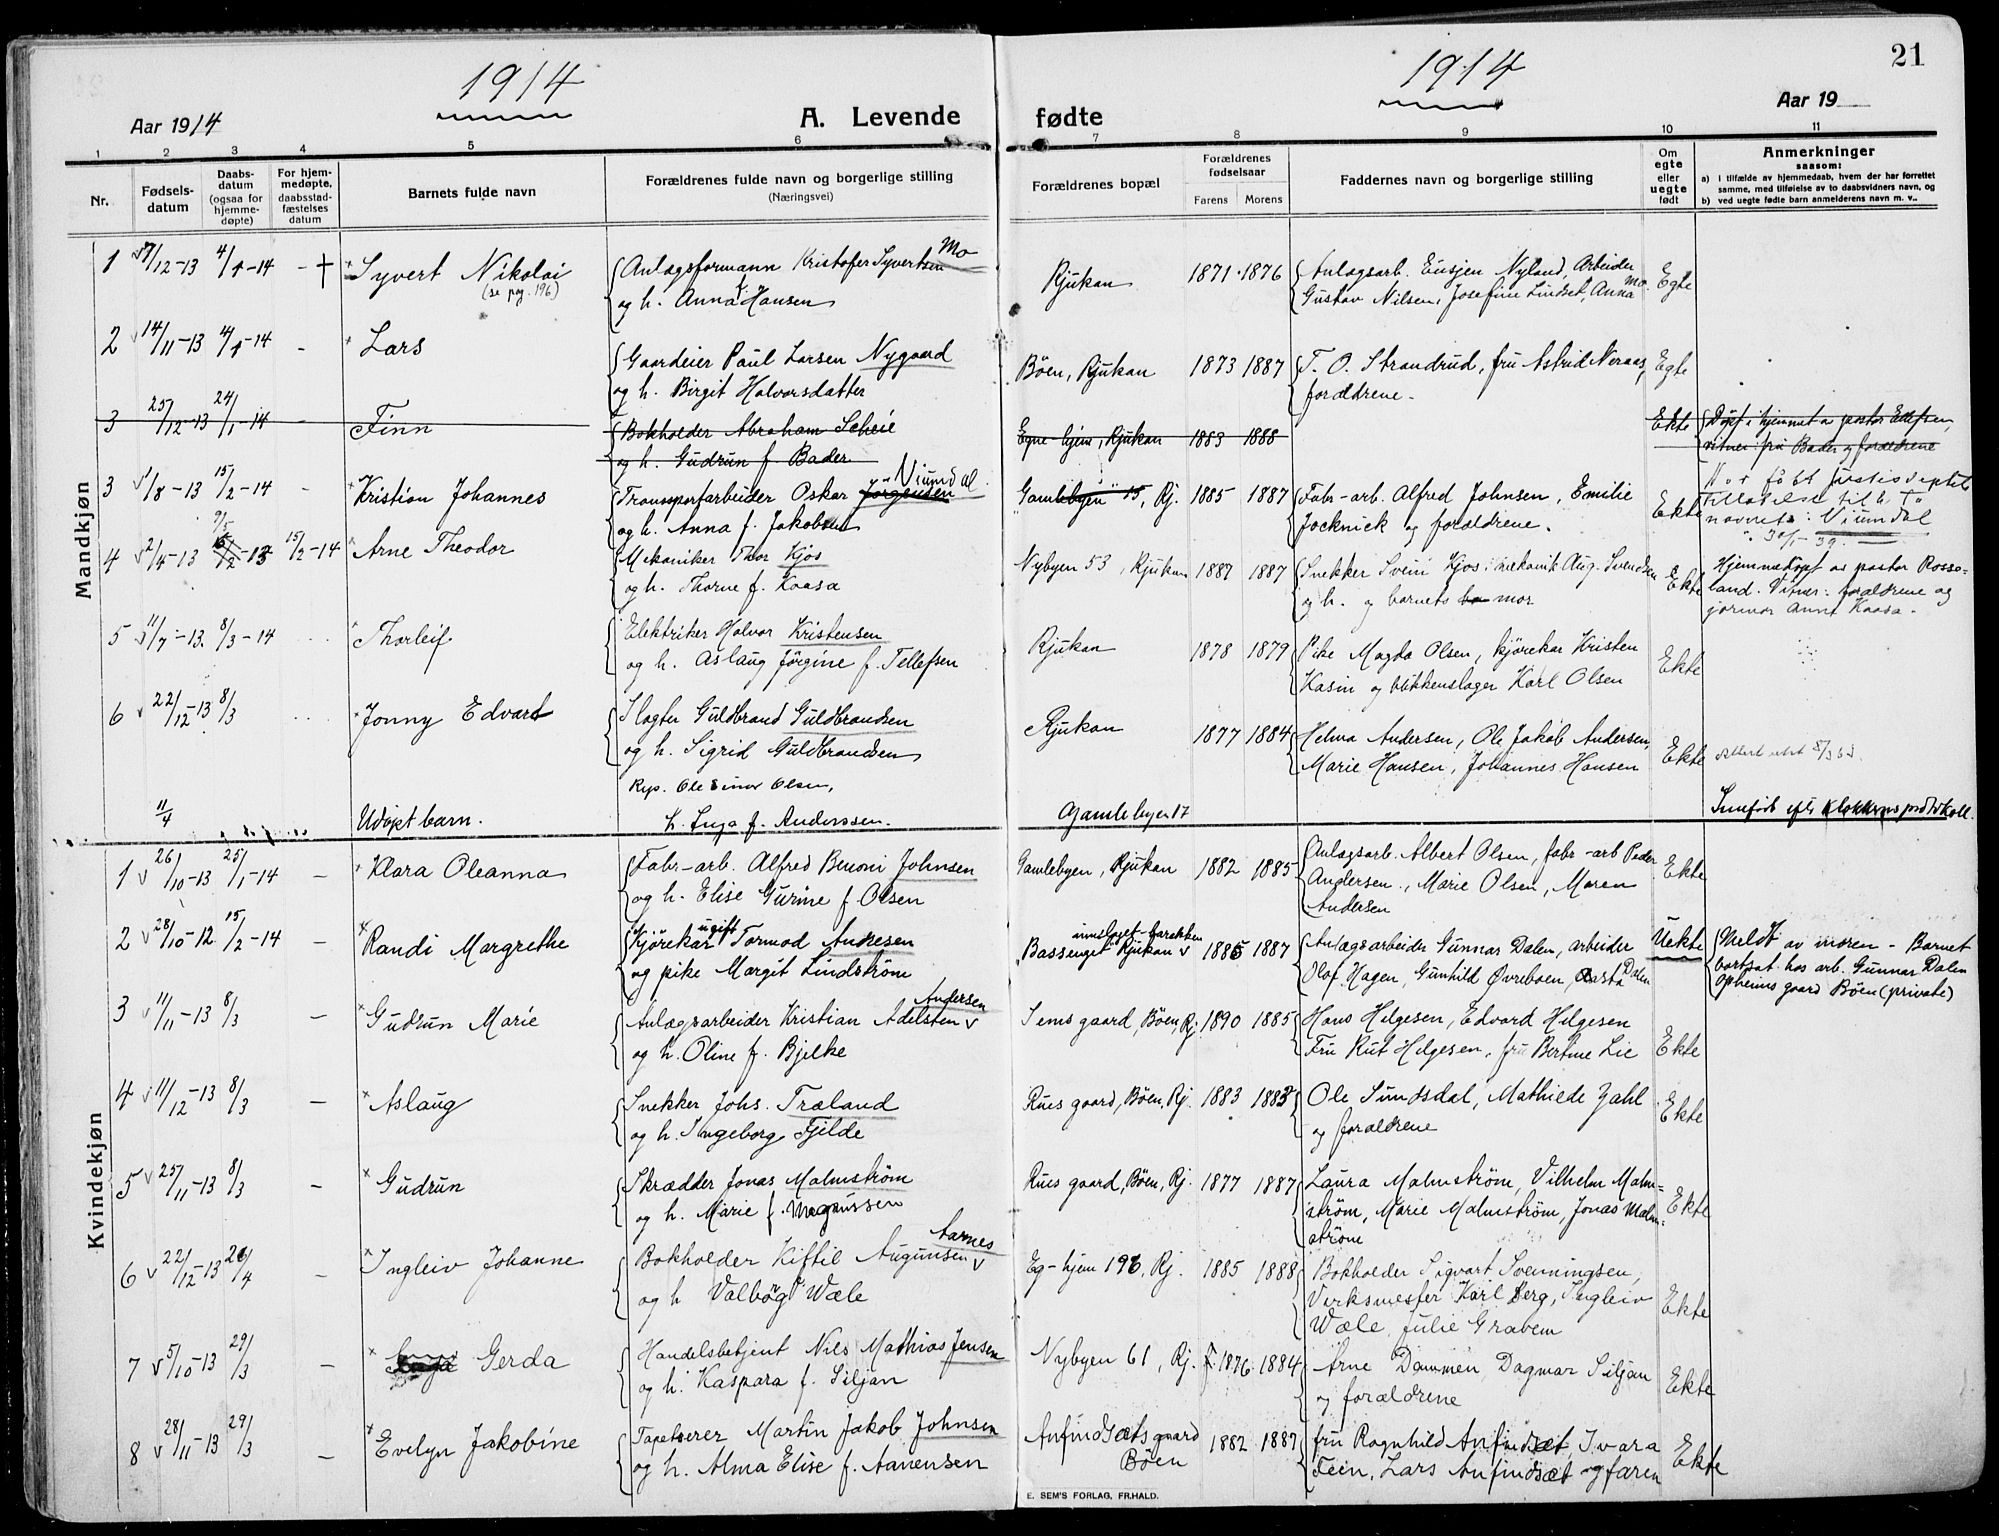 21
1914
1914
Aar 1914
A. Levende
fødte
Aar 19
1 2 3 4 5 6 7 8 9 10 11
Nr.
Fødsels-
datum
Daabs-
datum
(ogsaa for
hjemme-
døpte)
For hjem-
medøpte,
daabsstad-
fæstelses
datum
Barnets fulde navn
Forældrenes fulde navn og borgerlige stilling
(Næringsvei)
Forældrenes bopæl
Forældrenes
fødselsaar
Farens Morens
Faddernes navn og borgerlige stilling
Om
egte
eller
uegte
født
Anmerkninger
saasom:
a) I tilfælde av hjemmedaab, hvem der har forrettet
samme, med tilføielse av to daabsvidners navn, og
b) ved uegte fødte barn anmelderens navn m. v..
Mandkjøn
1 /12-13 4/1-14 - † Syvert Nikolai
(se pag. 196)
Anlægsformann Kristofer Syvertsen Mo
og h. Anna Hansen
Rjukan 1871 1876
Anlagsarb. Eusjen Nyland, Arbeider
Gustav Nilsen, Josefine Lindset, Anna Mo.
Egte
2 14/11-13 4/1-14 - Lars
Gaardeier Paul Larsen Nygaard
og h. Birgit Halvorsdatter
Bøen, Rjukan 1873 1887
T. O. Strandrud, fru Astrid Neraas,
forældrene.
Egte
3 25/12-13 24/1-14 Finn
Bokholder Abraham Scheie
og h. Gudrun f. Bader
Egne-hjem, Rjukan 1883 1888
Ekte
Døpt i hjemmet av pastor Ellefsen,
vitner: fru Bader og forældrene
3 1/8-13 15/2-14 - Kristian Johannes
Transportarbeider Oskar Jørgensen Viumdal
og h. Anna f. Jakobsen
Gamlebyen 15, Rj. 1885 1887
Fabr-arb. Alfred Johnsen, Emilie
Jocknick og forældrene.
Ekte
Har fått Justisdeptets
tillatelse til å ta
navnet: Viumdal
30/1-39.
4 2/4-13 9/5 15/2-14 Arne Theodor
Mekaniker Thor Kjos
og h. Thorne f. Kaasa
Nybyen 53, Rjukan 1887 1887
Snekker Svein Kjos, mekanik Aug. Svendsen
og h. og barnets mor
Ekte
Hjemmedøpt av pastor Rosse-
land. Vitner: forældrene og
jormor Anne Kaasa.
5 11/7-13. 8/3-14 Thorleif
Elektriker Halvor Kristensen
og h. Aslaug Jørgine f. Tellefsen
Rjukan 1878 1879
Pike Magda Olsen, kjørekar Kristen
Kasin og blikkenslager Karl Olsen
Ekte
6 22/12-13 8/3 Jonny Edvart
Slagter Guldbrand Guldbrandsen
og h. Sigrid Guldbrandsen
Rjukan 1877 1884
Helma Andersen, Ole Jakob Andersen,
Marie Hansen, Johannes Hansen
Ekte
11/4 Udøpt barn.
Rep. Ole Einar Olsen,
h. Inga f. Anderssen.
Gamlebyen 17
Innført efter klokkerens protokoll.
Kvindekjøn
1 26/10-13 25/1-14 - Klara Oleanna
Fabr-arb. Alfred Bruoni Johnsen
og h. Elise Gurine f. Olsen
Gamlebyen, Rjukan 1882 1885
Anlagsarb. Albert Olsen, fabr-arb Peder
Andersen, Marie Olsen, Maren
Andersen
Ekte
2 28/10-12 15/2-14 - Randi Margrethe
Kjørekar ugift Tormod Andresen
og pike Margit Lindstrøm
Bassenget Rjukan 1885 1887
Anlægsarbeider Gunnar Dalen, arbeider
Olof Hagen, Gunhild Øvreboen, Aasta Dalen
Uekte
Meldt av moren - Barnet
bortsat hos arb. Gunnar Dalen
Opheims gaard Bøen (private)
3 11/11-13 8/3 - Gudrun Marie
Anlagsarbeider Kristian Adelsten Andersen
og h. Oline f. Bjelke
Sems gaard, Bøen, Rj 1890 1885
Hans Helgesen, Edvard Helgesen
Fru Rut Helgesen, fru Bertine Lie
Ekte
4 11/12-13 8/3 - Aslaug
Snekker Johs. Træland
og h. Ingeborg Fjelde
Rues gaard, Bøen, Rj. 1883 1883
Ole Sundsdal, Mathilde Zahl
og forældrene
Ekte
5 25/11-13 8/3 - Gudrun
Skrædder Jonas Malmstrøm
og h. Marie f. Magnussen
Rues gaard, Bøen, Rj. 1877 1887
Laura Malmstrøm, Vilhelm Malm-
strøm, Marie Malmstrøm, Jonas Malm-
strøm
Ekte
6 22/12-13 26/4 - Ingleiv Johanne
Bokholder Kittil Augunsen Aarnes
og h Valborg Wæle
Eg-hjem 196, Rj. 1885 1888
Bokholder Sigvart Svenningsen,
Verksmester Karl Berg, Ingleiv
Wæle, Julie Gravem
Ekte
7 5/10-13 29/3 - Gerda
Handelsbetjent Nils Mathias Jensen
og h. Kaspara f. Siljan
Nybyen 61, Rj. 1876 1884
Arne Dammen, Dagmar Siljan
og forældrene
Ekte
8 28/11-13 29/3 - Evelyn Jakobine
Tapetserer Martin Jakob Johnsen
og h. Alma Elise f. Aanensen
Anfindsæts gaard
Bøen 1882 1887
fru Ragnhild Anfindsæt Ivara
Feen, Lars Anfindsæt og faren
Ekte
E. SEM'S FORLAG, FR.HALD.